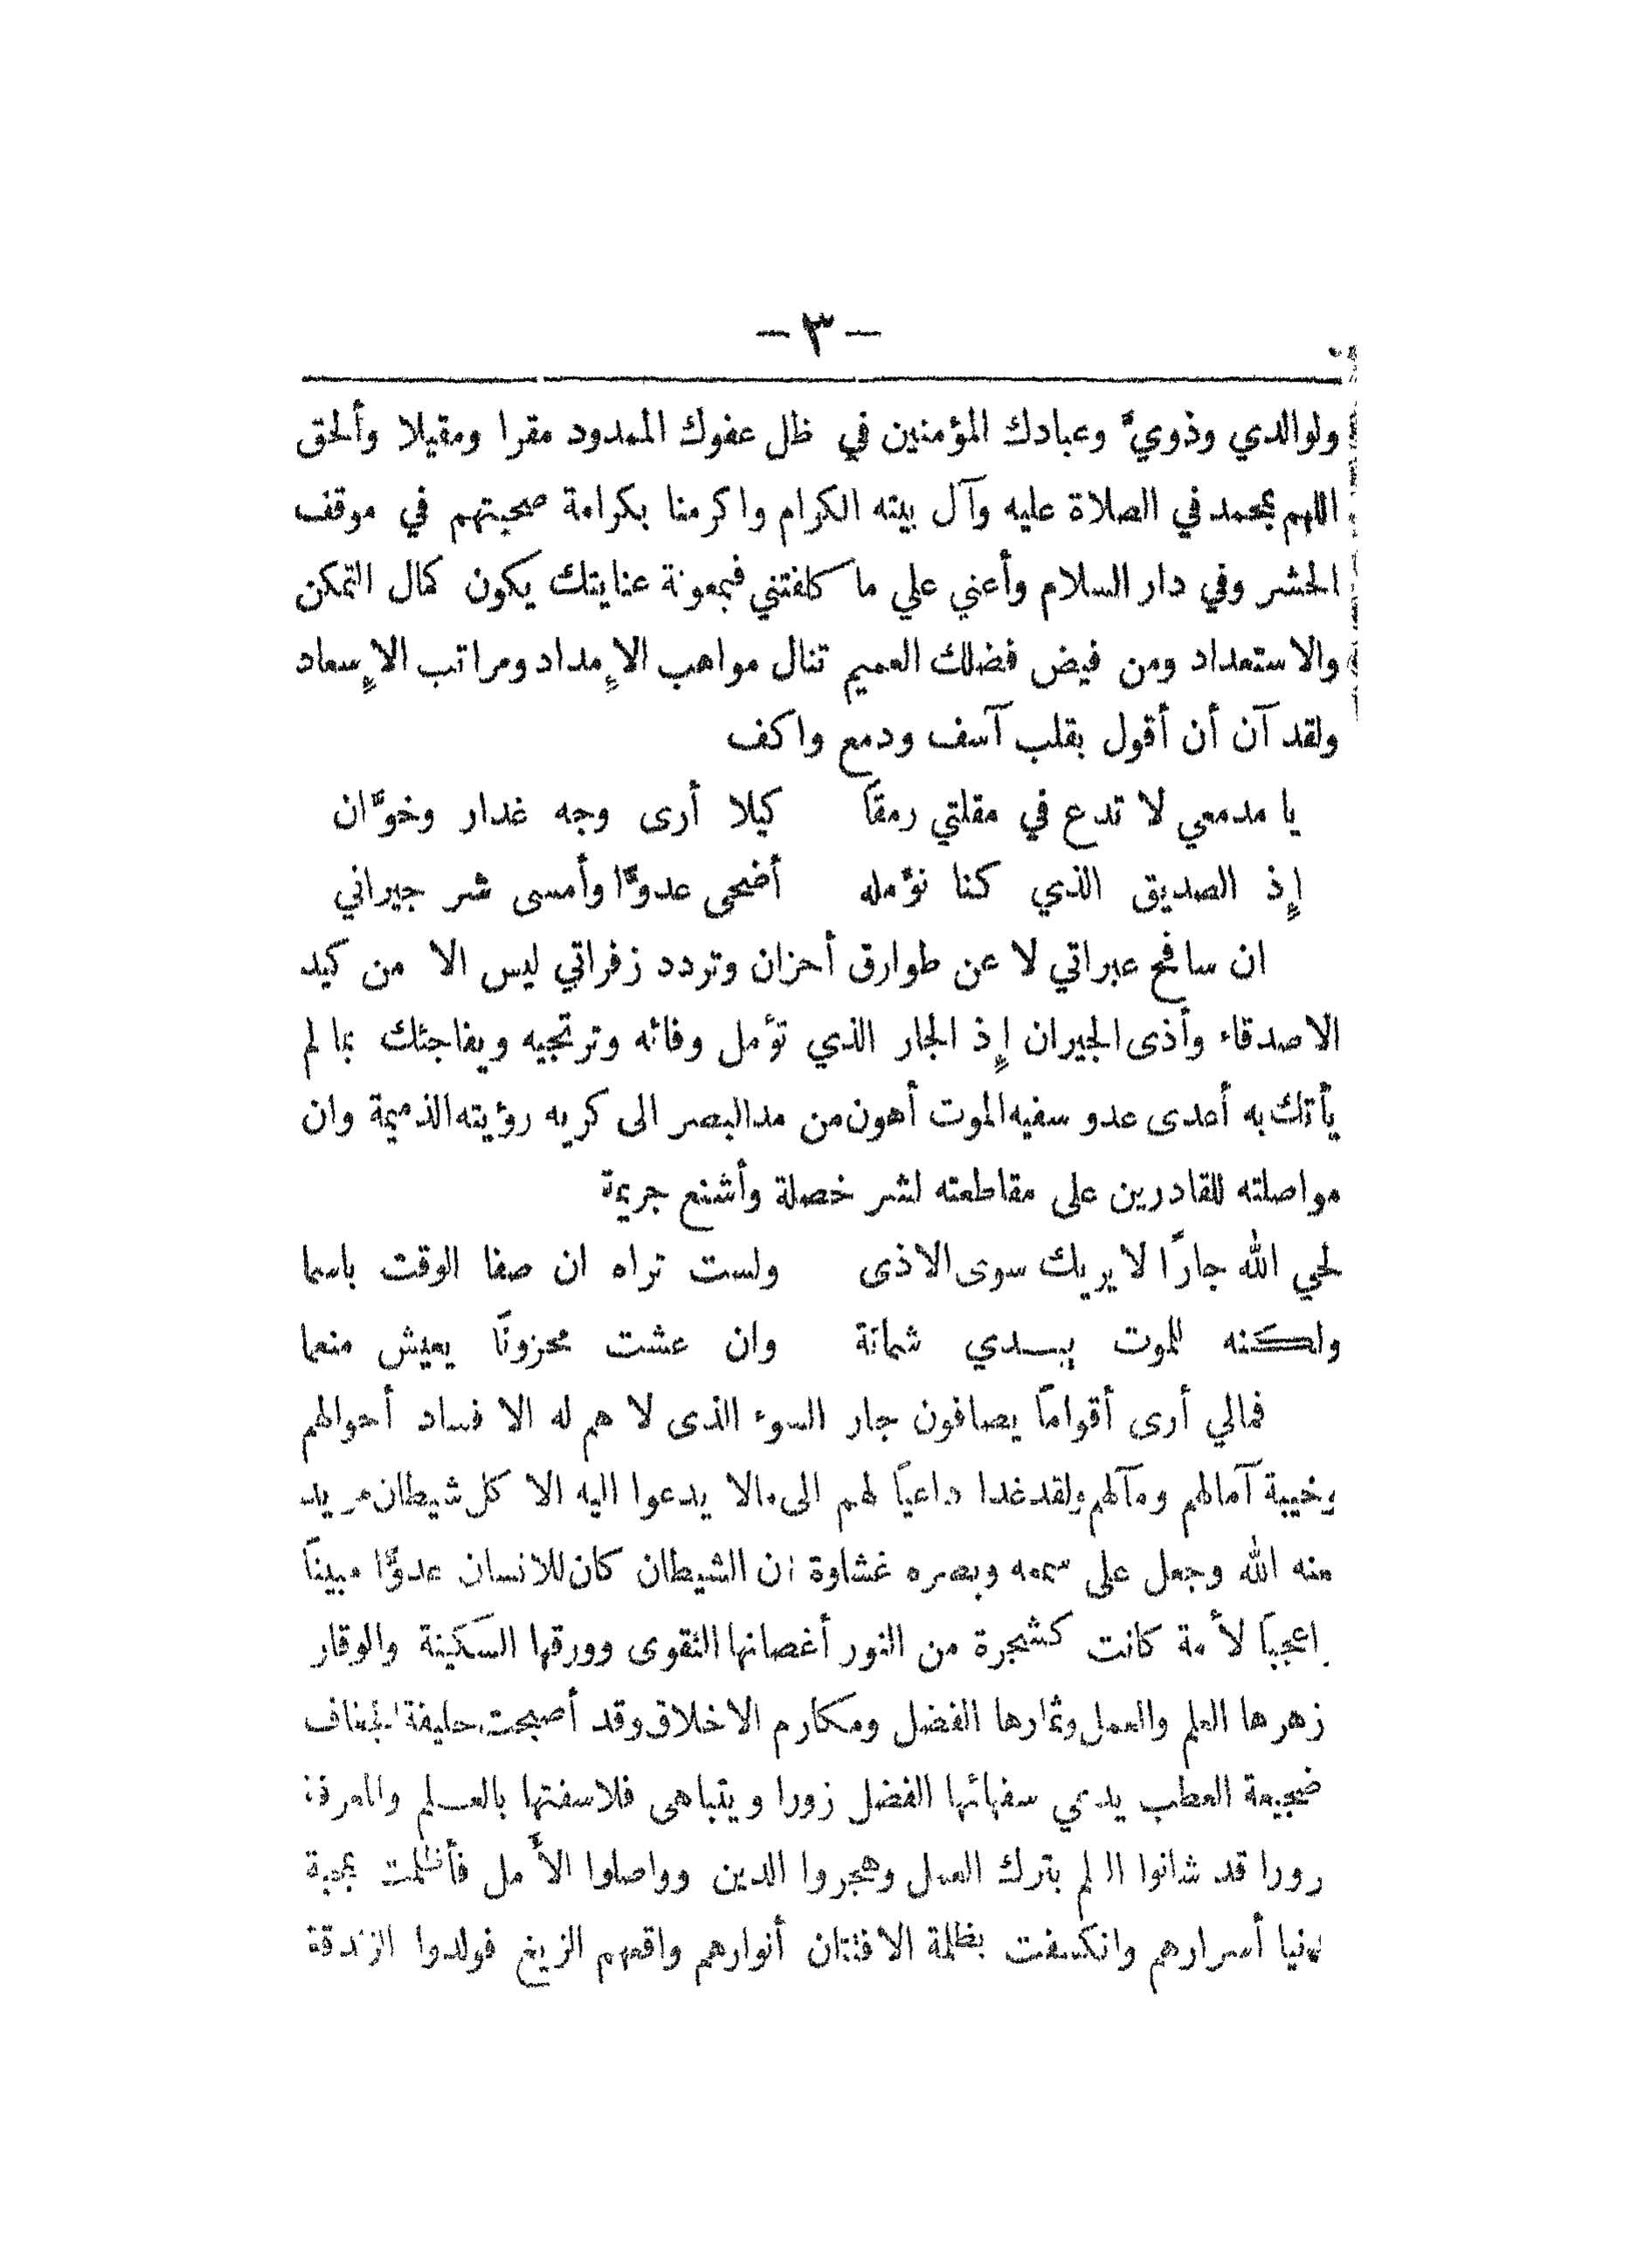 — ٣ —
ولوالدي وذويَّ وعبادك المؤمنين في ظل عفوك الممدود مقرا ومقيلا وألحق
اللهم بمحمد في الصلاة عليه وآل بيته الكرام واكرمنا بكرامة صحبتهم في موقف
الحشر وفي دار السلام وأعني علي ما كلفتني فبمعونة عنايتك يكون كمال التمكن
والاستعداد ومن فيض فضلك العميم تنال مواهب الإمداد ومراتب الإسعاد
ولقد آن أن أقول بقلب آسف ودمع واكف
يا مدمعي لا تدع في مقلتي رمقاً كيلا أرى وجه غدار وخوَّان
إذ الصديق الذي كنا نؤمله أضحى عدوًّا وأمسى شر جيراني
ان سافح عبراتي لا عن طوارق أحزان وتردد زفراتي ليس الا من كيد
الاصدقاء وأذى الجيران إذ الجار الذي تؤمل وفائه وترتجيه ويفاجئك بما لم
يأتك به أعدى عدو سفيه الموت أهون من مد البصر الى كريه رؤيته الذميمة وان
مواصلته للقادرين على مقاطعته لشر خصلة وأشنع جريمة
لحي الله جارًا لا يريك سوى الاذى ولست تراه ان صفا الوقت باسما
ولكنه للموت يبدي شماتة وان عشت محزونًا يعيش منعما
فمالي أرى أقوامًا يصافون جار السوء الذى لا هم له الا فساد أحوالهم
وخيبة آمالهم ومآلهم ولقد غدا داعيًا لهم الى مالا يدعوا اليه الا كل شيطان مريد
منه الله وجعل على سمعه وبصره غشاوة ان الشيطان كان للانسان عدوًّا مبينًا
اعجبًا لأمة كانت كشجرة من النور أغصانها التقوى وورقها السكينة والوقار
زهرها العلم والعمل وثمارها الفضل ومكارم الاخلاق وقد أصبحت حليفة
ضجيعة العطب يدعي سفهائها الفضل زورا ويتباهى فلاسفتها بالعلم والمعرفة
قد شانوا العلم بترك العمل وهجروا الدين وواصلوا الأمل فأظلمت بمحبة
أسرارهم وانكسفت بظلمة الافتتان أنوارهم واقعهم الزيغ فولدوا الزندقة